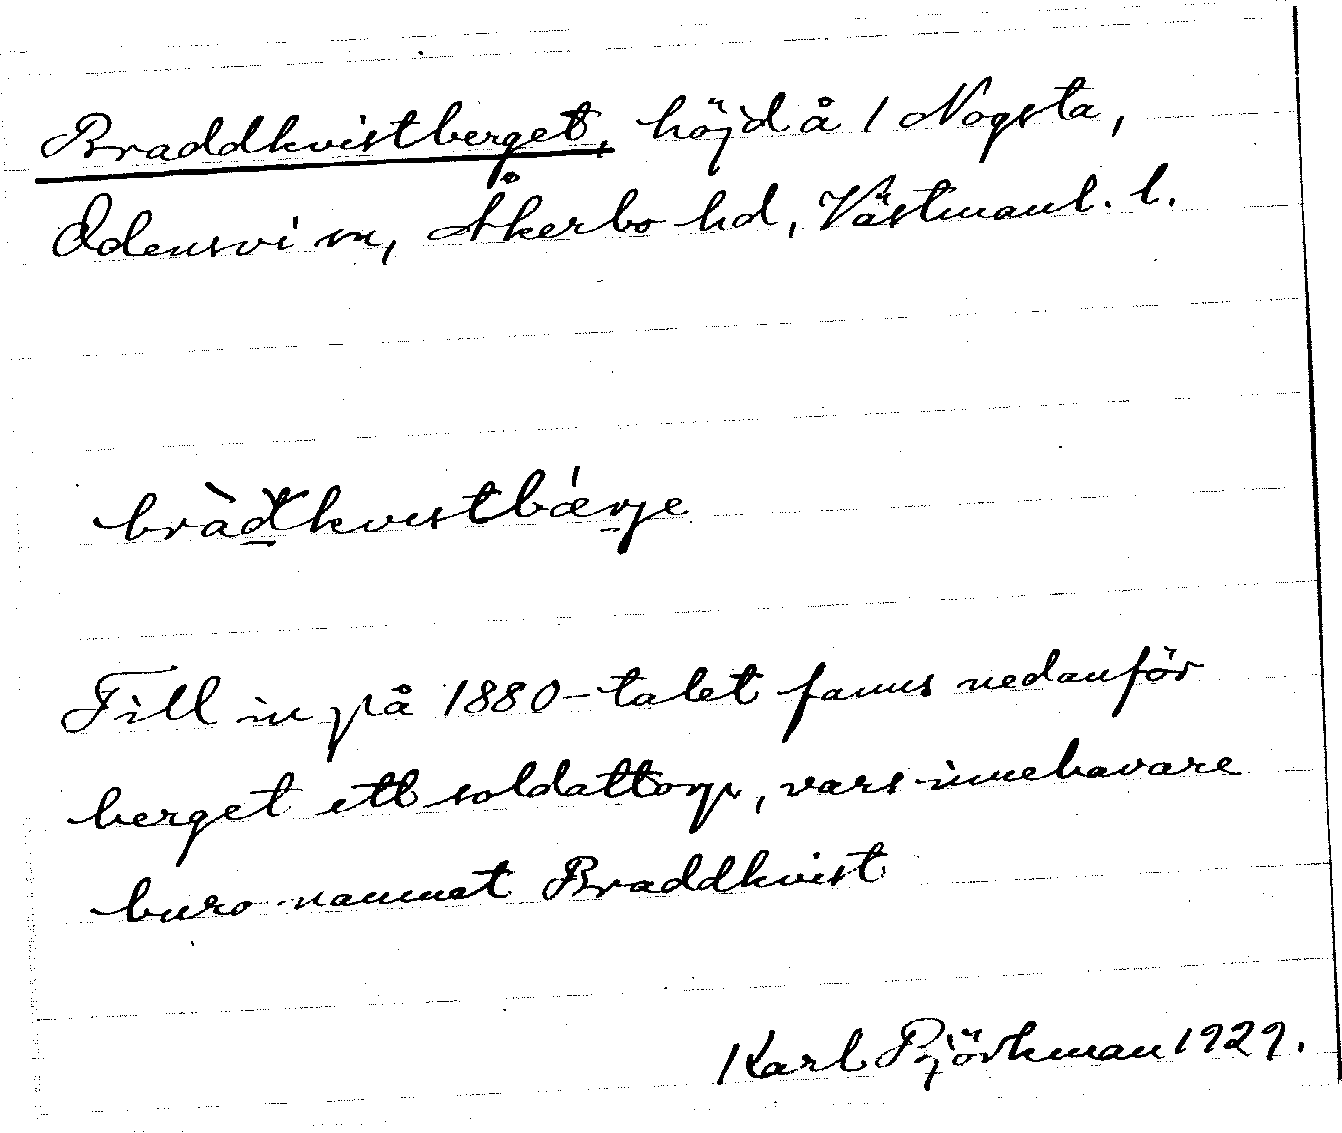 Braddkvistberget, höjd å 1 Nogsta,
Odensvi sn, Åkerbo hd, Västmanl. l.
bràd̲kvistbǽrje
Till in på 1880-talet fanns nedanför
berget ett soldattorp, vars innehavare
buro namnet Braddkvist
Karl Björkman 1929.